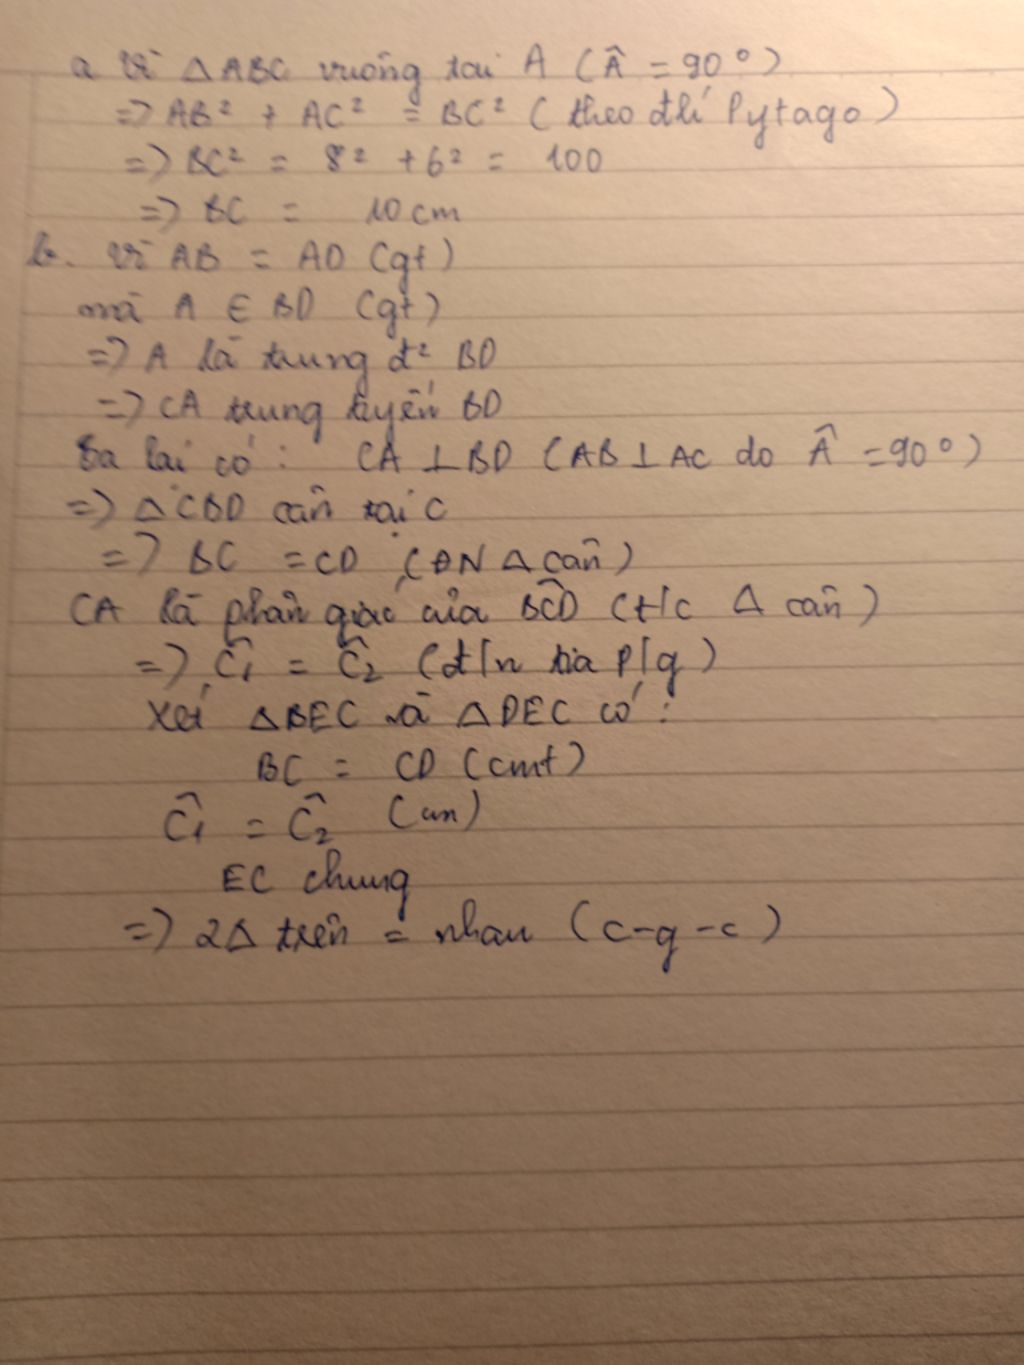 a. Vì ΔABC vuông tại A (Â = 90°)
=> AB² + AC² = BC² (theo đ.lí Pytago)
=> BC² = 8² + 6² = 100
=> BC = 10 cm
b. Vì AB = AD (gt)
mà A ∈ BD (gt)
=> A là trung đ² BD
=> CA trung tuyến BD
Ta lại có: CA ⊥ BD (AB ⊥ AC do Â = 90°)
=> ΔCBD cân tại C
=> BC = CD (ĐN Δ cân)
CA là phân giác của BĈD (t/c Δ cân)
=> Ĉ₁ = Ĉ₂ (đ/n tia p/g)
Xét ΔBEC và ΔDEC có:
BC = CD (cmt)
Ĉ₁ = Ĉ₂ (cm)
EC chung
=> 2Δ trên = nhau (c-g-c)